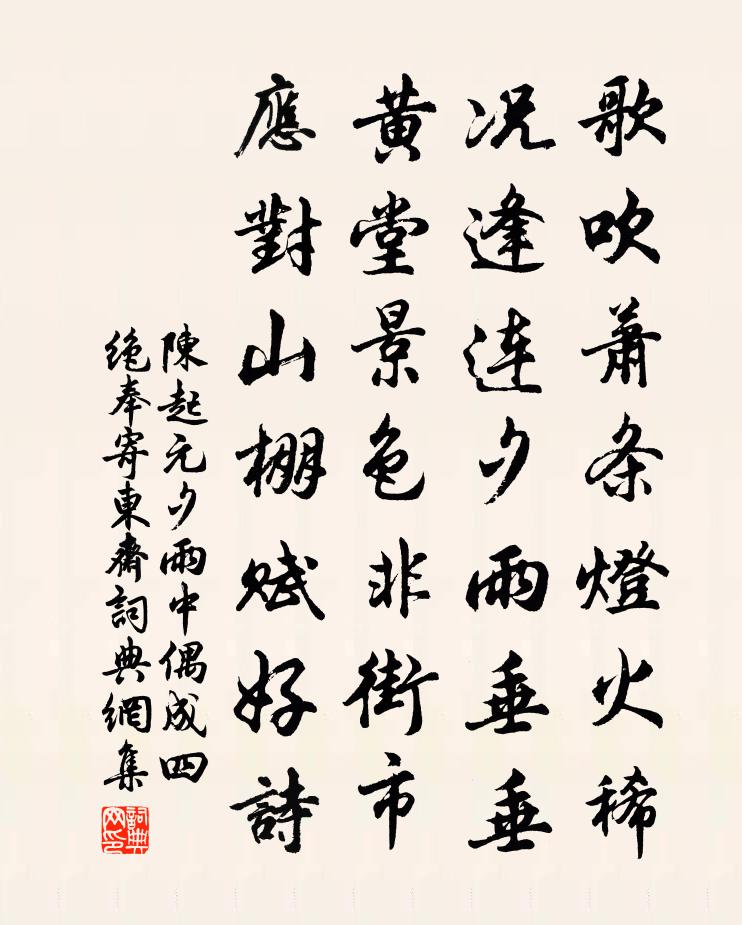 歌吹蕭条燈火稀
况逢連夕雨垂垂
黄堂景色非街市
應對山棚賦好詩
陳起元夕雨中偶成四
絶奉寄東齋詞典網集
詞典
网印